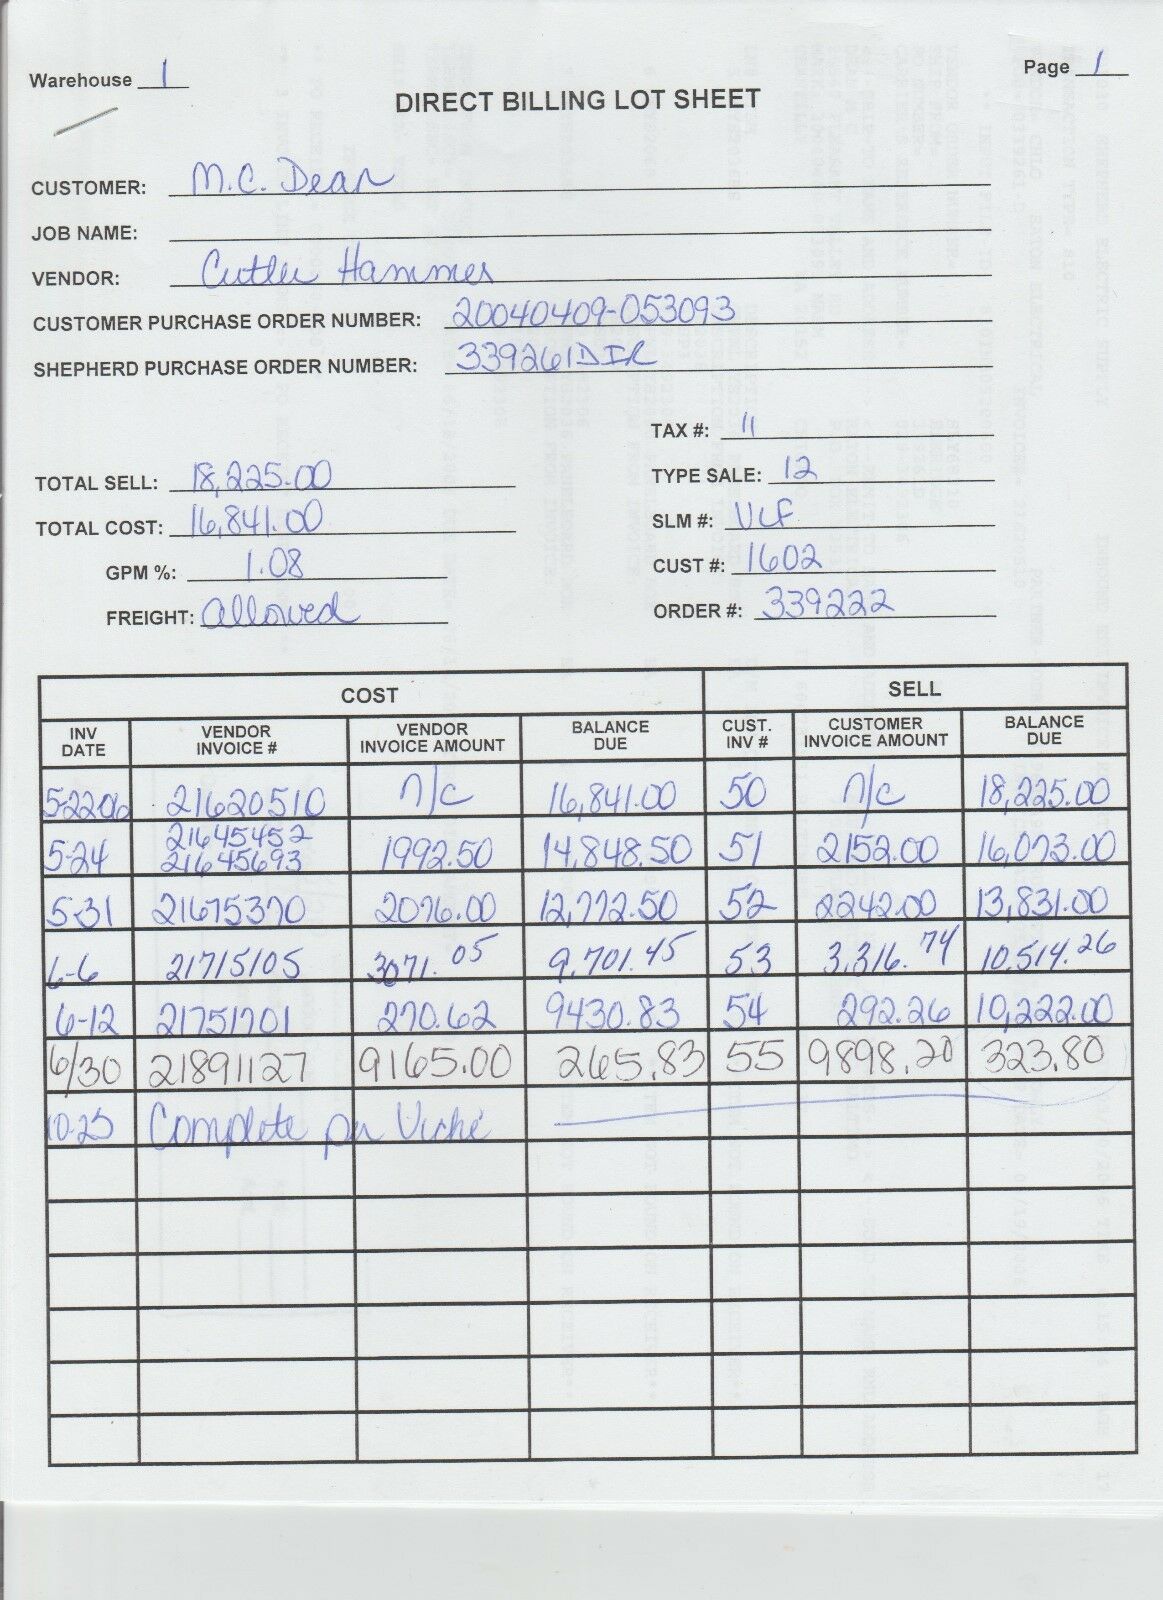 Warehouse 1
Page 1
DIRECT BILLING LOT SHEET
CUSTOMER: M.C. Dean
JOB NAME:
VENDOR: Cutler Hammer
CUSTOMER PURCHASE ORDER NUMBER: 20040409-053093
SHEPHERD PURCHASE ORDER NUMBER: 339261DIR
TAX #: 11
TOTAL SELL: 18,225.00 TYPE SALE: 12
TOTAL COST: 16,841.00 SLM #: VLF
GPM %: 1.08 CUST #: 1602
FREIGHT: allowed ORDER #: 339222
COST SELL
INV DATE VENDOR INVOICE # VENDOR INVOICE AMOUNT BALANCE DUE CUST. INV # CUSTOMER INVOICE AMOUNT BALANCE DUE
5-22-06 21620510 n/c 16,841.00 50 n/c 18,225.00
5-24 21645452 21645693 1992.50 14,848.50 51 2152.00 16,073.00
5-31 21675370 2076.00 12,772.50 52 2242.00 13,831.00
6-6 21715105 3071.05 9,701.45 53 3,316.74 10,514.26
6-12 21751701 270.62 9430.83 54 292.26 10,222.00
6/30 21891127 9165.00 265.83 55 9898.20 323.80
10-25 Complete per Viche